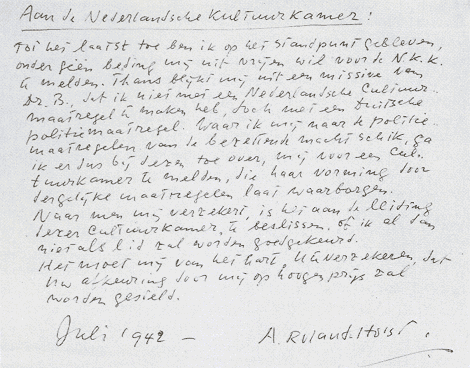 Aan de Nederlandsche Kultuurkamer:
Tot het laatst toe ben ik op het standpunt gebleven,
onder geen beding mij uit vrijen wil voor de N.K.K.
te melden. Thans blijkt mij uit een missive van
Dr. B., dat ik niet met een Nederlandsche Cultuur-
maatregel te maken heb, doch met een Duitsche
politiemaatregel. Waar ik mij naar de politie-
maatregelen van de bezettende macht schik, ga
ik er dus bij dezen toe over, mij voor een Cul-
tuurkamer te melden, die haar vorming door
dergelijke maatregelen laat waarborgen.
Naar men mij verzekert, is het aan de leiding
dezer Cultuurkamer, te beslissen of ik al dan
niet als lid zal worden goedgekeurd.
Het moet mij van het hart, U te verzekeren, dat
Uw afkeuring door mij op hoogen prijs zal
worden gesteld.
Juli 1942 — A. Roland Holst.